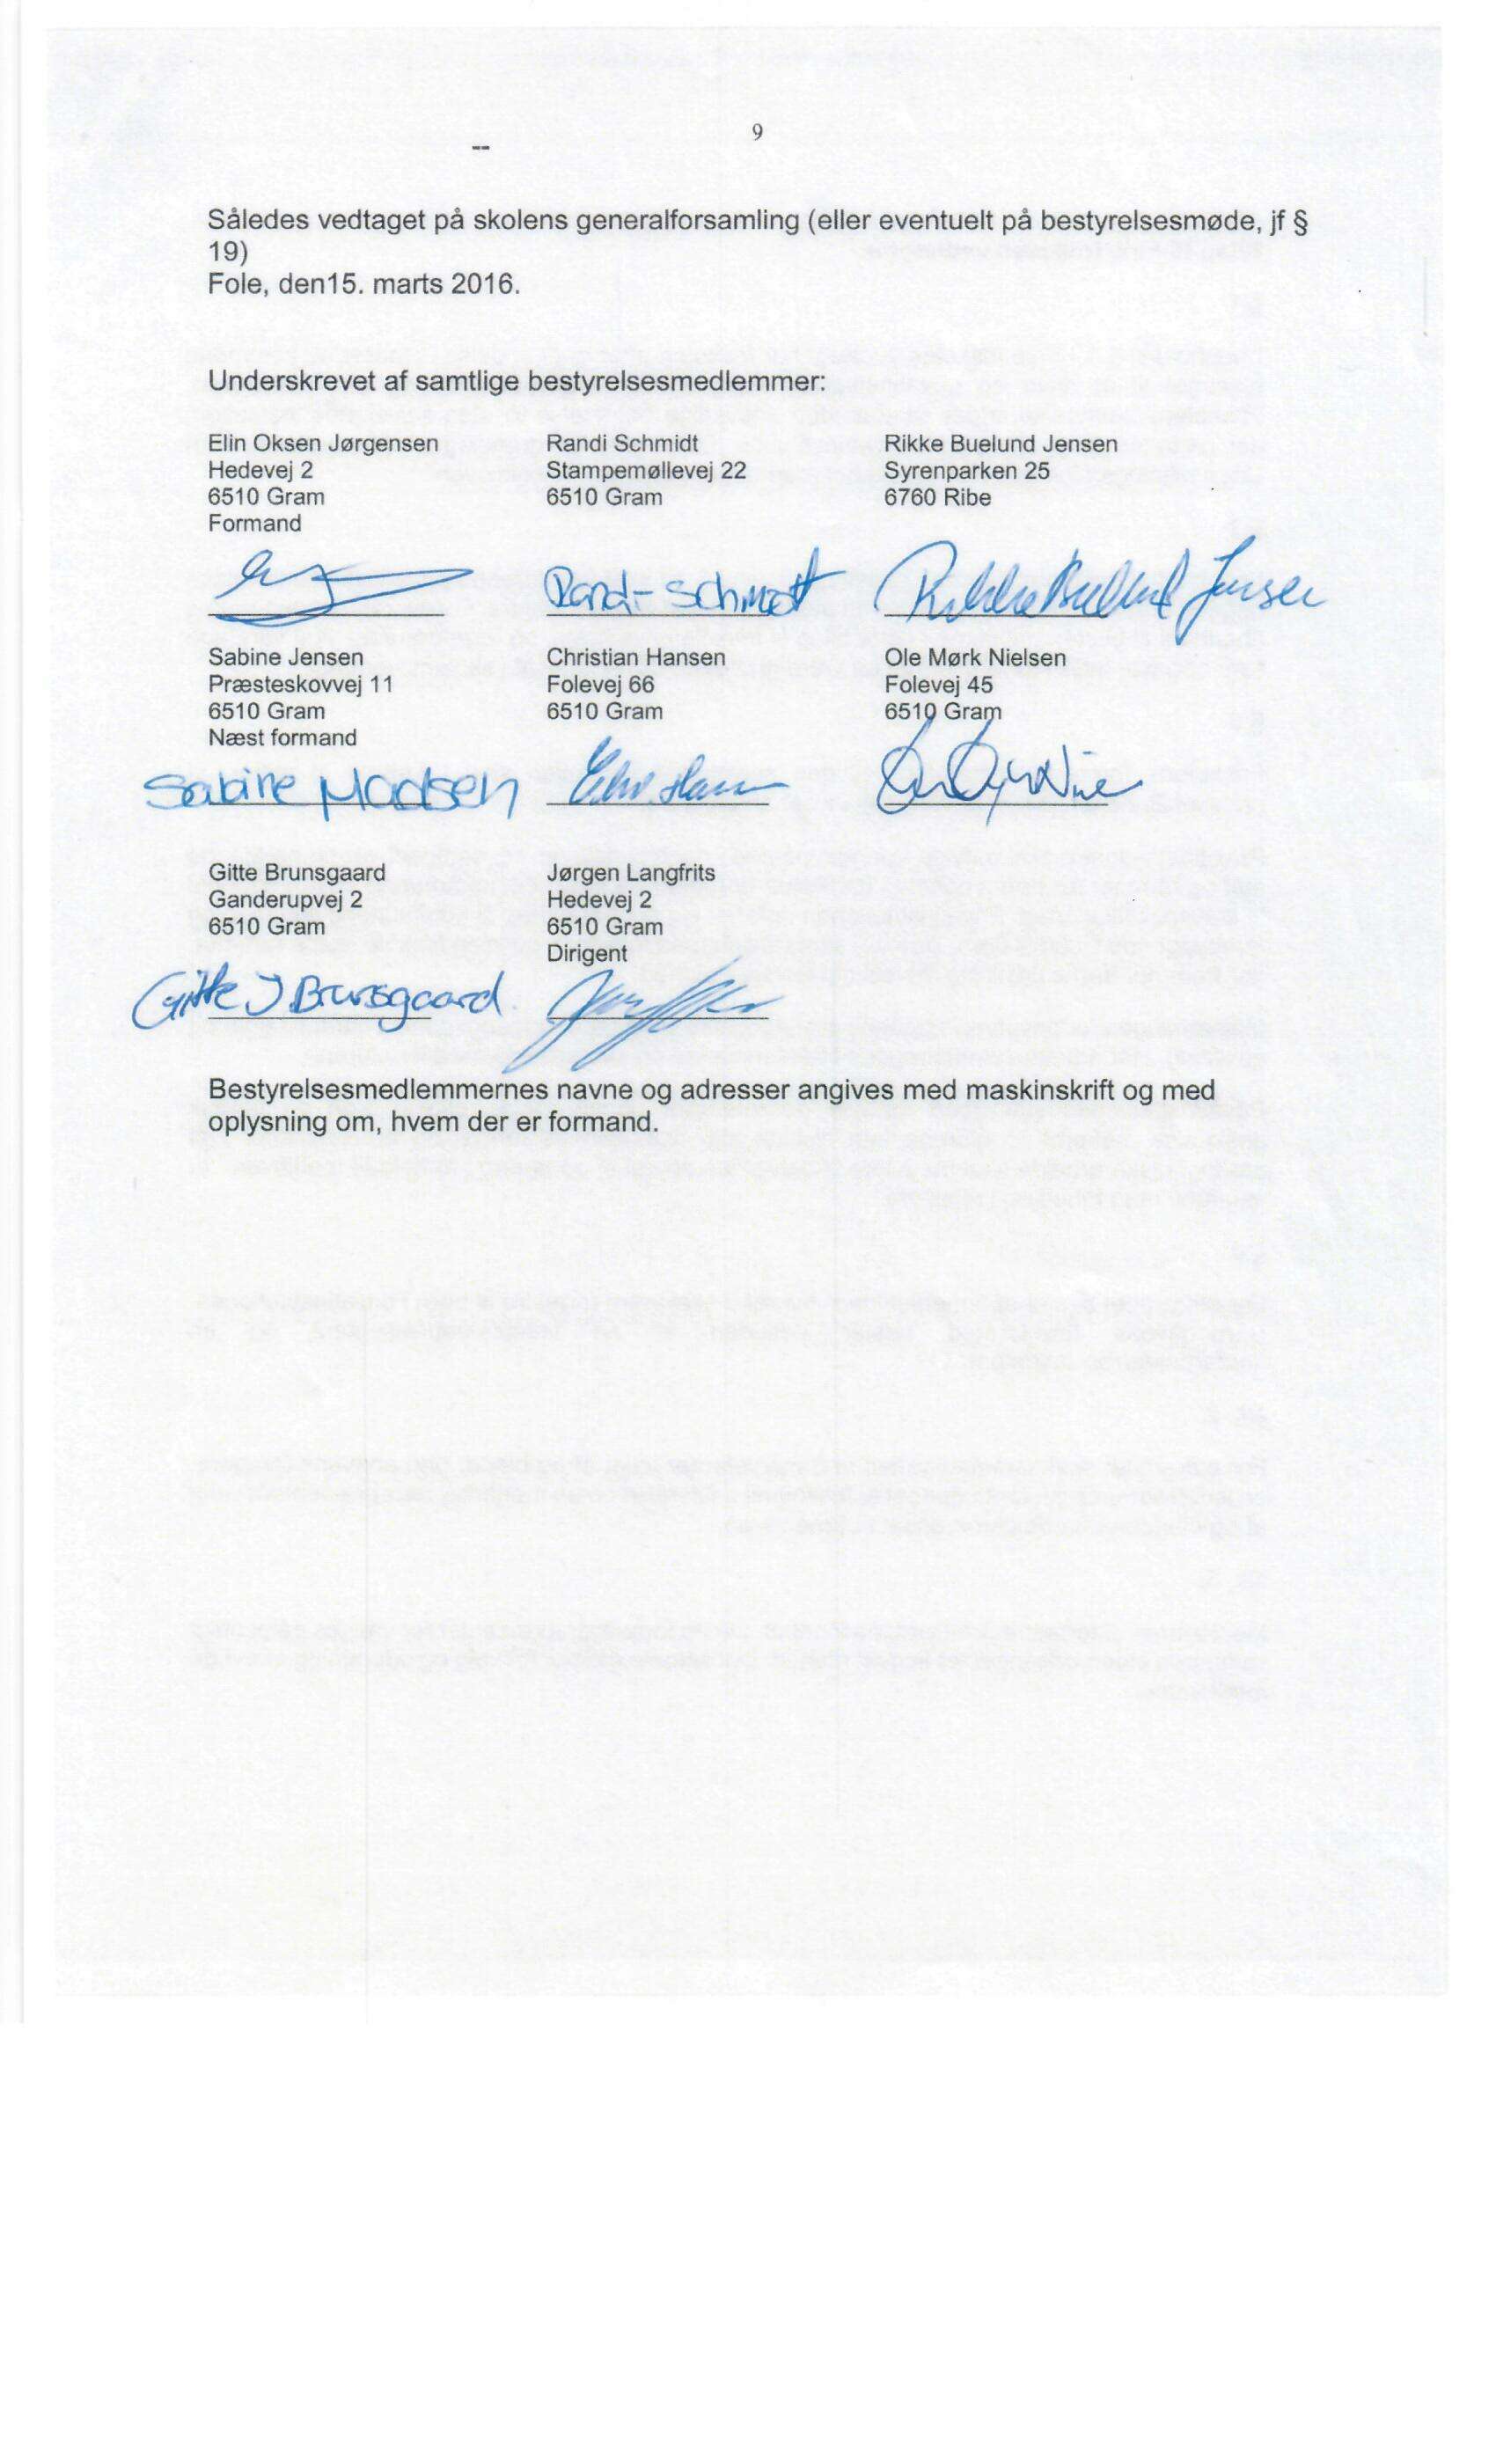 9
--
Således vedtaget på skolens generalforsamling (eller eventuelt på bestyrelsesmøde, jf §
19)
Fole, den15. marts 2016.
Underskrevet af samtlige bestyrelsesmedlemmer:
Elin Oksen Jørgensen
Hedevej 2
6510 Gram
Formand
Randi Schmidt
Stampemøllevej 22
6510 Gram
Randi Schmidt
Rikke Buelund Jensen
Syrenparken 25
6760 Ribe
Rikke Buelund Jensen
Sabine Jensen
Præsteskovvej 11
6510 Gram
Næst formand
Sabine Madsen
Christian Hansen
Folevej 66
6510 Gram
Ole Mørk Nielsen
Folevej 45
6510 Gram
Gitte Brunsgaard
Ganderupvej 2
6510 Gram
Gitte J Brunsgaard
Jørgen Langfrits
Hedevej 2
6510 Gram
Dirigent
Bestyrelsesmedlemmernes navne og adresser angives med maskinskrift og med
oplysning om, hvem der er formand.